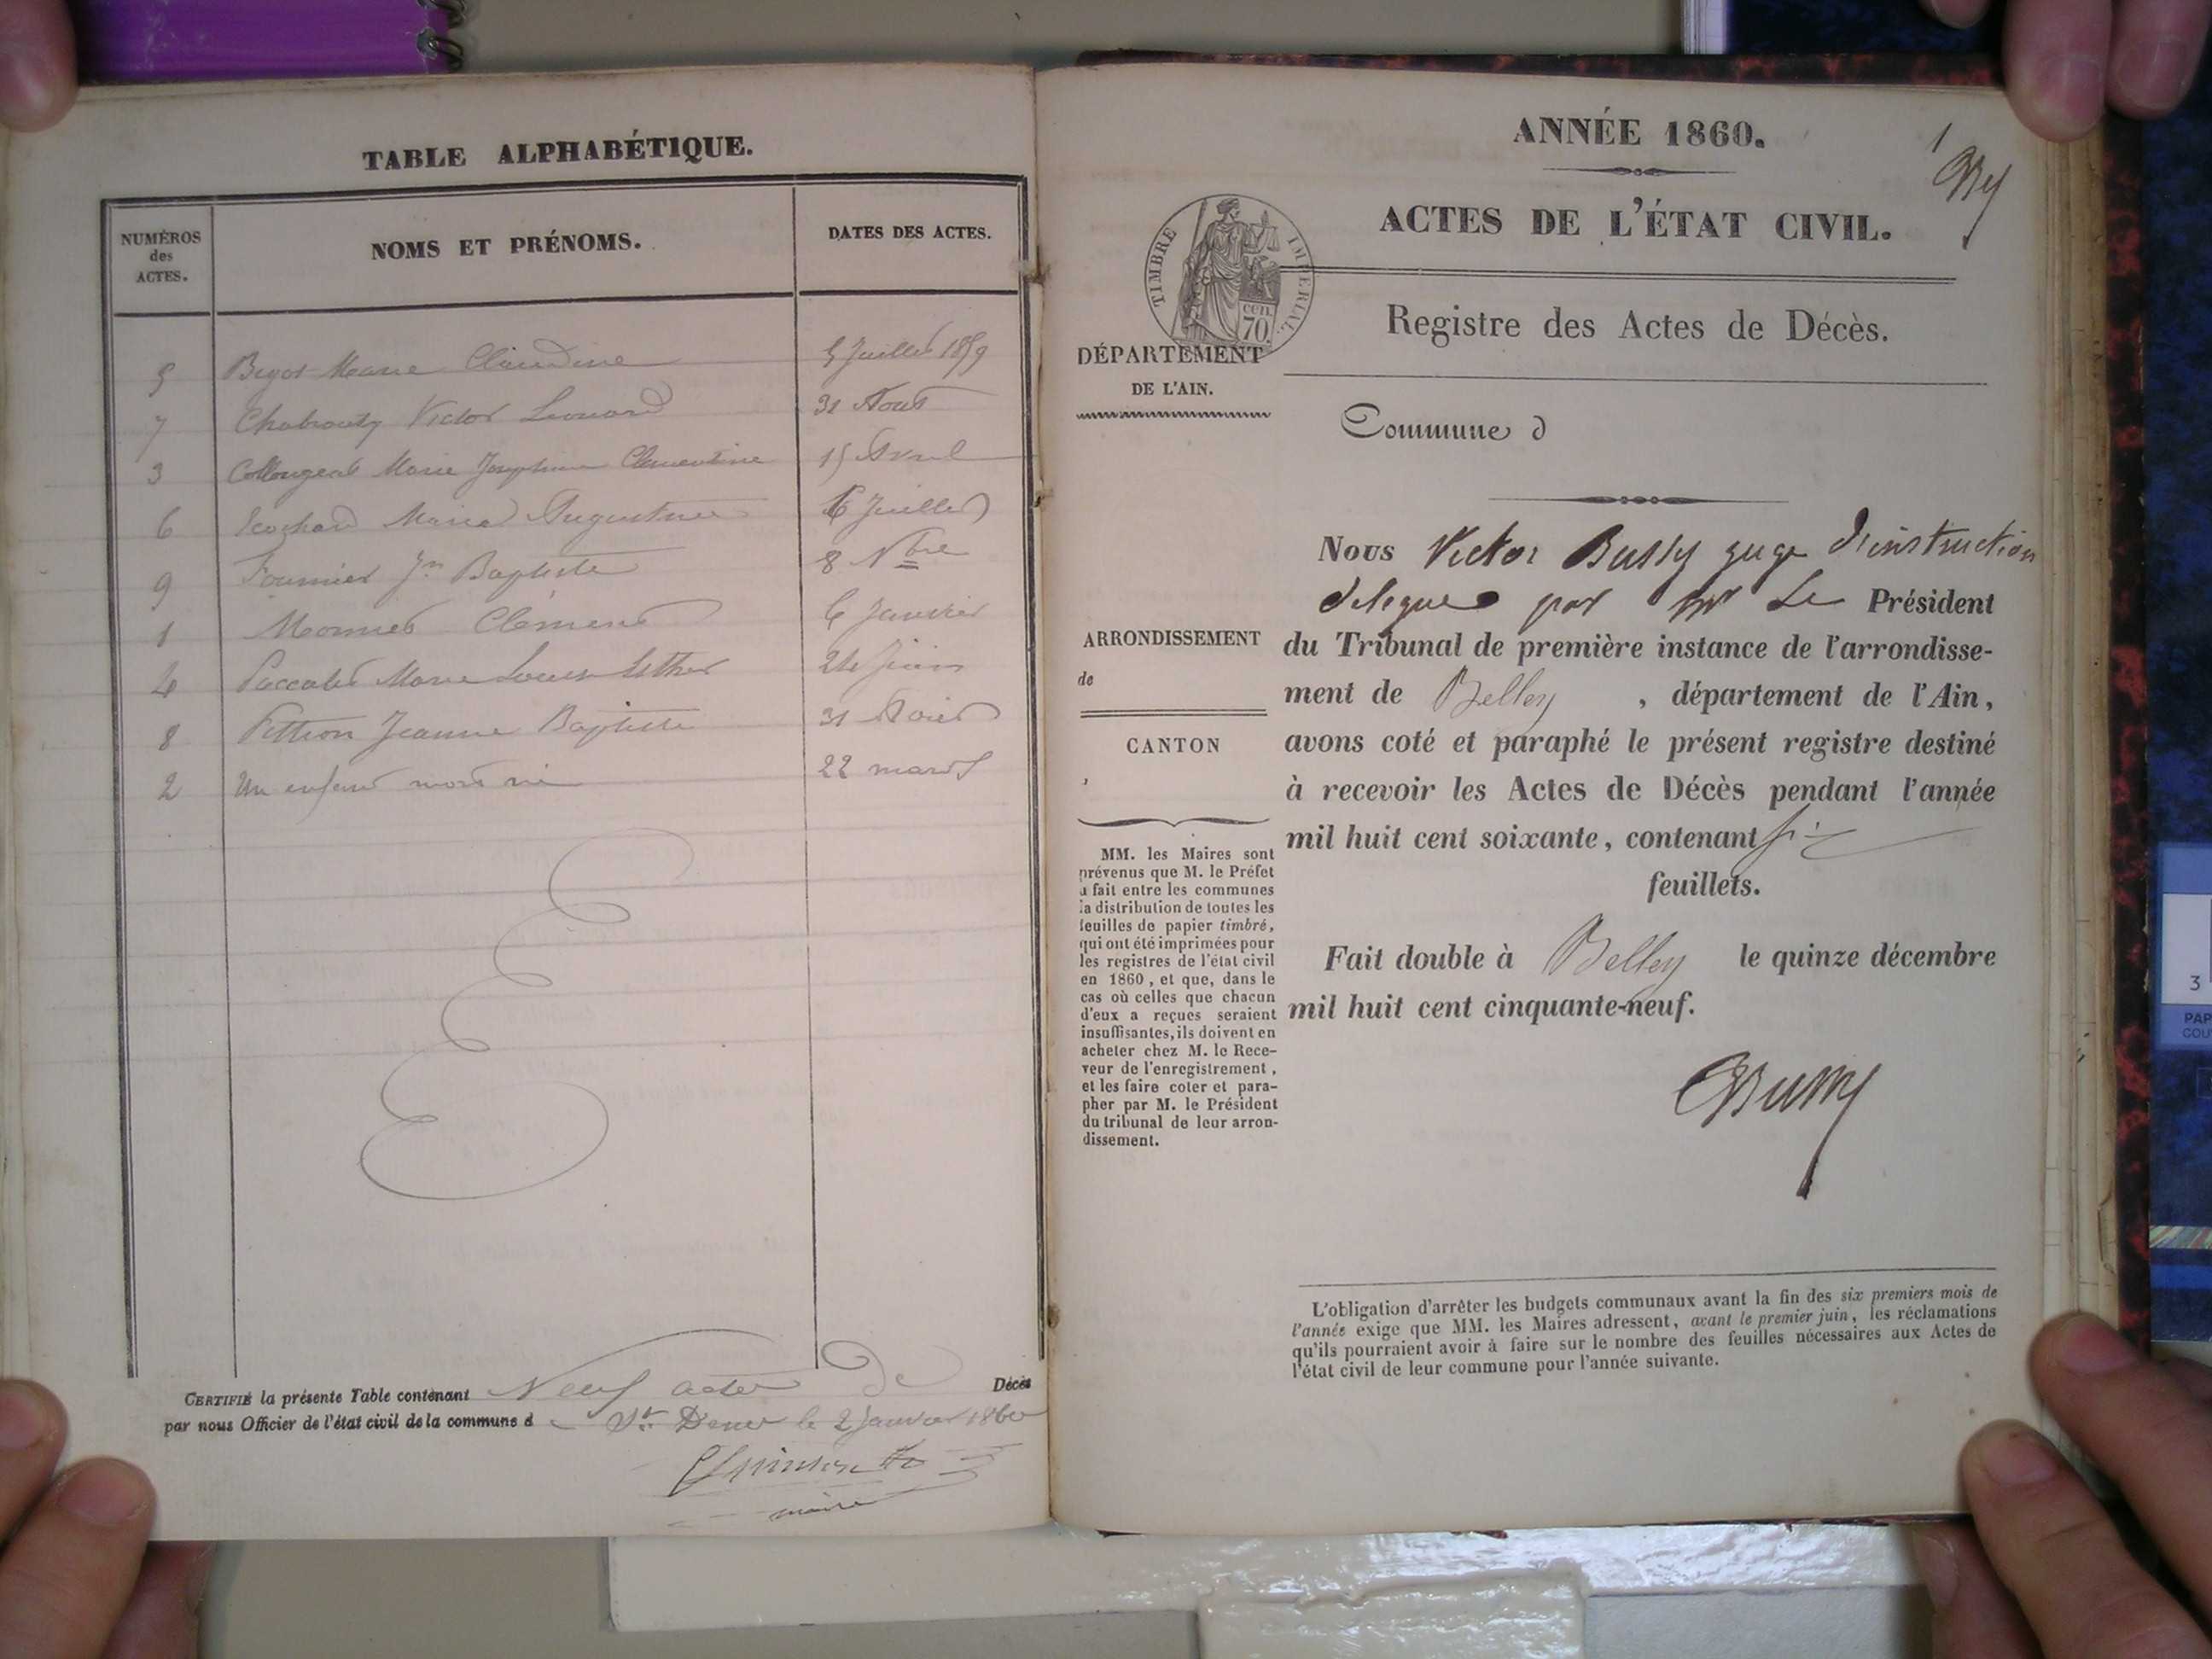 TABLE ALPHABÉTIQUE.
NUMÉROS des ACTES.
NOMS ET PRÉNOMS.
DATES DES ACTES.
5 Marie Claudine 5 Juillet 1859
7 Victor Leonard 31 Aout
3 Marie Josephine Clementine 15 Avril
6 Maria Augustine 6 Juillet
9 Fournier Jn Baptiste 8 Nbre
1 Clément 6 Janvier
4 Marie Louise Esther 24 Juin
8 Jeanne Baptiste 31 Aout
2 Un enfant mort né 22 mars
CERTIFIÉ la présente Table contenant Neuf actes de Décès
par nous Officier de l'état civil de la commune d St Denis le 2 janvier 1860
maire
ANNÉE 1860.
1
ACTES DE L'ÉTAT CIVIL.
TIMBRE IMPÉRIAL
CEN. 70.
Registre des Actes de Décès.
DÉPARTEMENT
DE L'AIN.
Commune d
Nous Victor Bussy juge d'instruction
délégué par Mr Le Président
ARRONDISSEMENT
de
du Tribunal de première instance de l'arrondisse-
ment de Belley, département de l'Ain,
CANTON
avons coté et paraphé le présent registre destiné
à recevoir les Actes de Décès pendant l'année
mil huit cent soixante, contenant six
feuillets.
MM. les Maires sont
prévenus que M. le Préfet
a fait entre les communes
la distribution de toutes les
feuilles de papier timbré,
qui ont été imprimées pour
les registres de l'état civil
en 1860, et que, dans le
cas où celles que chacun
d'eux a reçues seraient
insuffisantes, ils doivent en
acheter chez M. le Rece-
veur de l'enregistrement,
et les faire coter et para-
pher par M. le Président
du tribunal de leur arron-
dissement.
Fait double à Belley le quinze décembre
mil huit cent cinquante-neuf.
Bussy
L'obligation d'arrêter les budgets communaux avant la fin des six premiers mois de
l'année exige que MM. les Maires adressent, avant le premier juin, les réclamations
qu'ils pourraient avoir à faire sur le nombre des feuilles nécessaires aux Actes de
l'état civil de leur commune pour l'année suivante.
3
PAP
COU